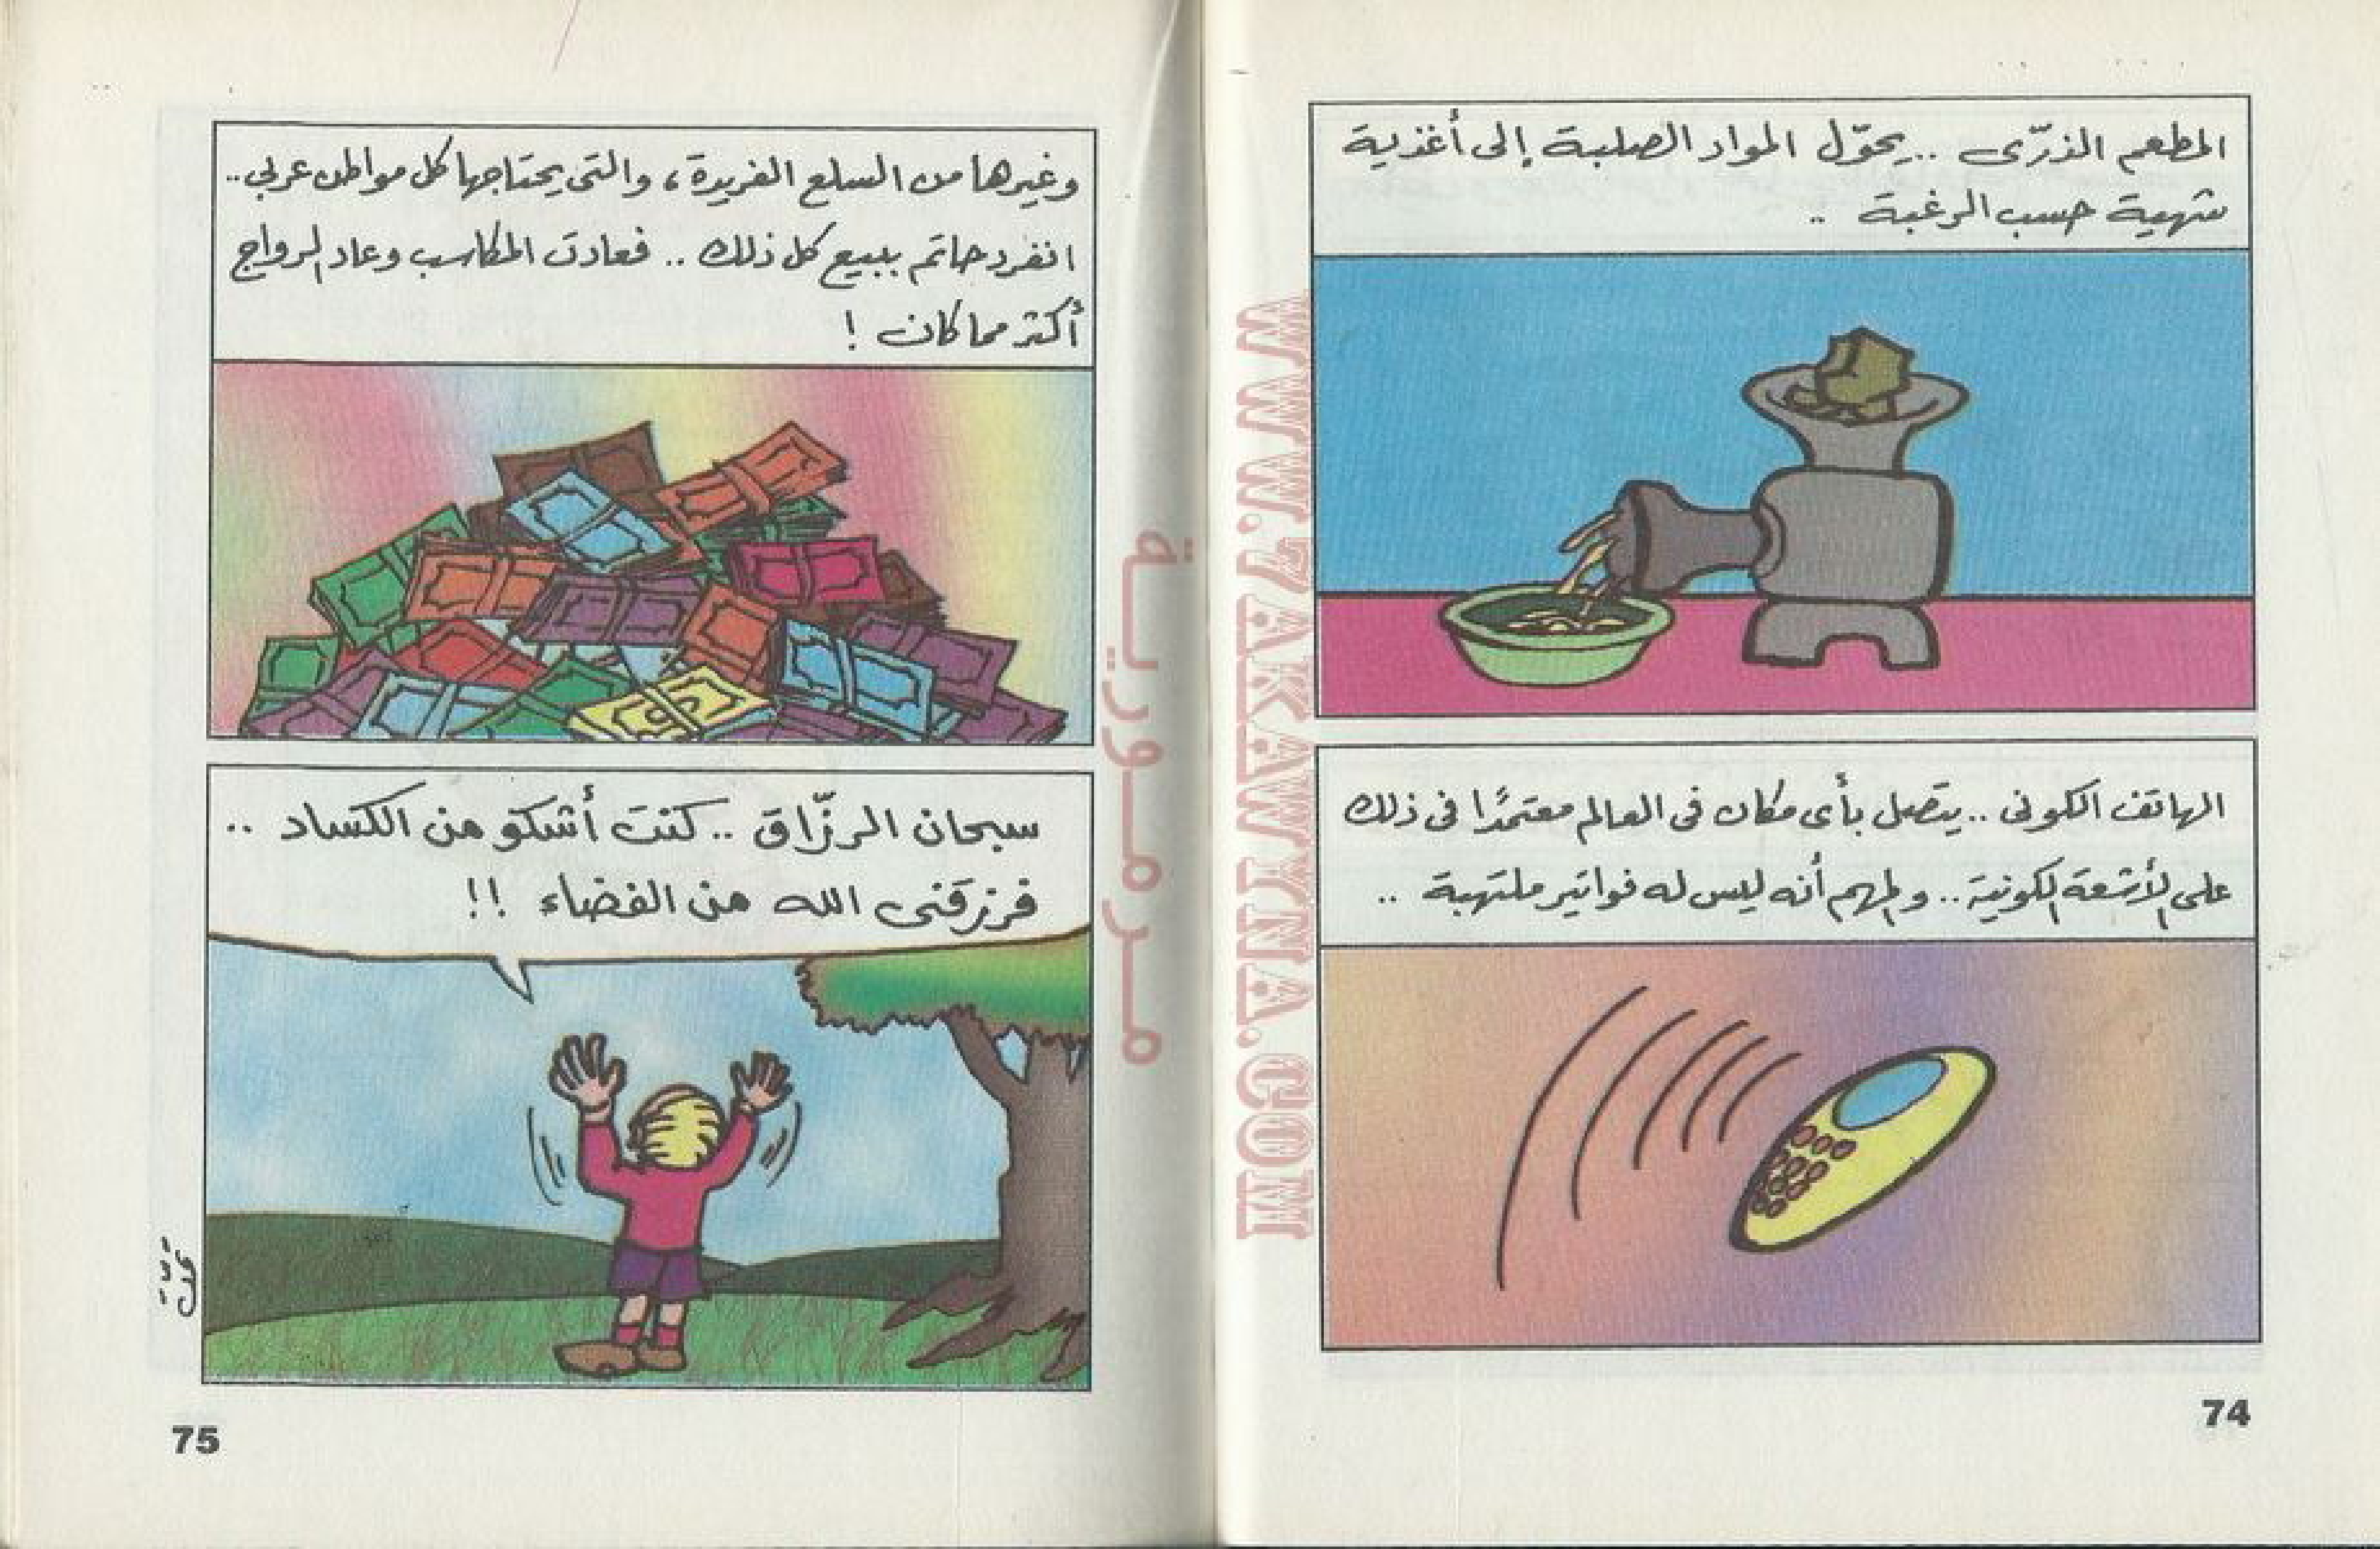 المطعم الذرّى .. يحوّل المواد الصلبة إلى أغذية
شهية حسب الرغبة ..
الهاتف الكونى .. يتصل بأى مكان فى العالم معتمدًا فى ذلك
على الأشعة الكونية .. والمهم أنه ليس له فواتير ملتهبة ..
74
وغيرها من السلع الفريدة، والتى يحتاجها كل مواطن عربى ..
انفرد حاتم ببيع كل ذلك .. فعادت المكاسب وعاد الرواج
أكثر مما كان !
سبحان الرزّاق .. كنت أشكو من الكساد ..
فرزقنى الله من الفضاء !!
تمت
75
WWW.7AKAWINA.COM
مرمورية